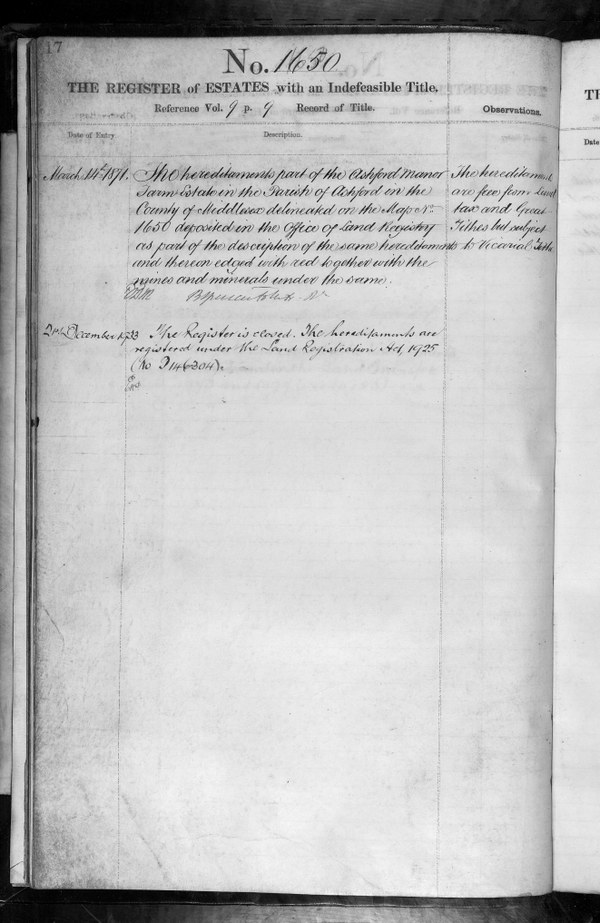 17
No. 1650
THE REGISTER of ESTATES with an Indefeasible Title.
Reference Vol. 9 p. 9 Record of Title.
Observations.
Date of Entry
Description.
Date
March 14th 1871. The hereditaments part of the Ashford Manor
Farm Estate in the Parish of Ashford in the
County of Middlesex delineated on the Map No.
1650 deposited in the Office of Land Registry
as part of the description of the same hereditaments
and thereon edged with red together with the
mines and minerals under the same.
The hereditaments
are free from Land
tax and Great
Tithes but subject
to Vicarial Tithe
December 1933 The Register is closed. The hereditaments are
registered under the Land Registration Act, 1925
(No